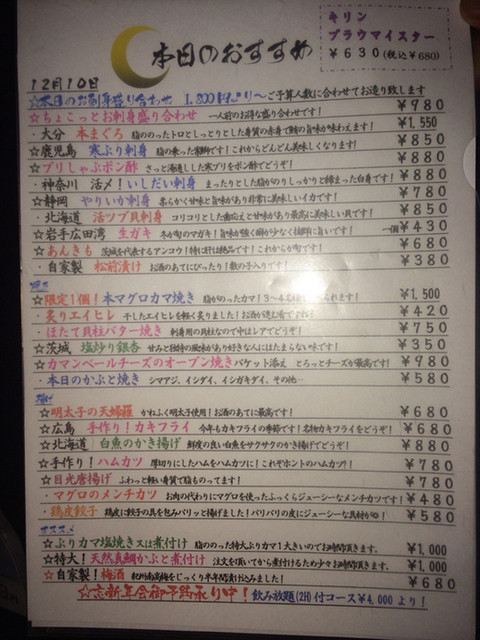 キリン
ブラウマイスター
¥630(税込¥680)
本日のおすすめ
12月10日
☆本日のお刺身盛り合わせ 1,800円より〜ご予算人数に合わせてお造り致します
☆ちょこっとお刺身盛り合わせ 一人前のお得な盛り合わせです! ¥980
・大分 本まぐろ 脂ののったトロとしっとりとした身質の赤身で鮪の旨味が味わえます! ¥1,550
☆鹿児島 寒ぶり刺身 脂の乗った寒鰤です!これからどんどん美味しくなります! ¥850
☆ブリしゃぶポン酢 さっと湯通しした寒ブリをポン酢でどうぞ! ¥880
・神奈川 活〆!いしだい刺身 まったりとした脂がのりしっかりと締まった白身です! ¥880
☆静岡 やりいか刺身 柔らかく甘味と旨味があり非常に美味しいイカです! ¥780
・北海道 活ツブ貝刺身 コリコリとした歯応えと甘味があり最高に美味しい貝です! ¥850
☆岩手広田湾 生ガキ 冬が旬のマガキ!旨味が強く癖が少なく抜群に旨いです! 一個¥430
☆あんきも 茨城を代表するアンコウ!特に肝は絶品です!これからが旬です! ¥680
・自家製 松前漬け お酒のあてにぴったり!数の子入りです! ¥380
焼き
☆限定1個!本マグロカマ焼き 脂がのったカマ!3〜4名様 られます! ¥1,500
・炙りエイヒレ 干したエイヒレを軽く炙りました!お酒が進む肴ですね! ¥420
・ほたて貝柱バター焼き 刺身用の貝柱なので中はレアでどうぞ! ¥750
☆茨城 塩炒り銀杏 甘みと独特の風味があり好きな人にはたまらない味です! ¥350
☆カマンベールチーズのオーブン焼き バケット添え とろっとチーズが最高です! ¥980
・本日のかぶと焼き シマアジ、イシダイ、イシガキダイ、その他… ¥580
揚げ
☆明太子の天婦羅 かねふく明太子使用!お酒のあてに最高です! ¥680
☆広島 手作り!カキフライ 今年もカキフライの季節です!名物カキフライをどうぞ! ¥680
☆北海道 白魚のかき揚げ 鮮度の良い白魚をサクサクのかき揚げでどうぞ! ¥880
☆手作り!ハムカツ 厚切りにしたハムをハムカツに!これぞホントのハムカツ!! ¥780
☆目光唐揚げ ふわっと軽い身質で脂ものってます! ¥780
・マグロのメンチカツ お肉の代わりにマグロを使ったふっくらジューシーなメンチカツです! ¥480
・鶏皮餃子 鶏皮に餃子の具を包みパリッと揚げました!パリパリの皮にジューシーな具材が◎! ¥580
オススメ
☆ぶりカマ塩焼き又は煮付け 脂ののった特大ぶりカマ1大きいのでお時間頂きます。 ¥1,000
☆特大!天然真鯛かぶと煮付け 注文を頂いてから煮付けるため少々お時間頂きます。 ¥1,000
☆自家製!梅酒 紀州南高梅をじっくり半年間漬け込みました! ¥680
☆忘新年会御予約承り中! 飲み放題(2H)付コース¥4,000より!